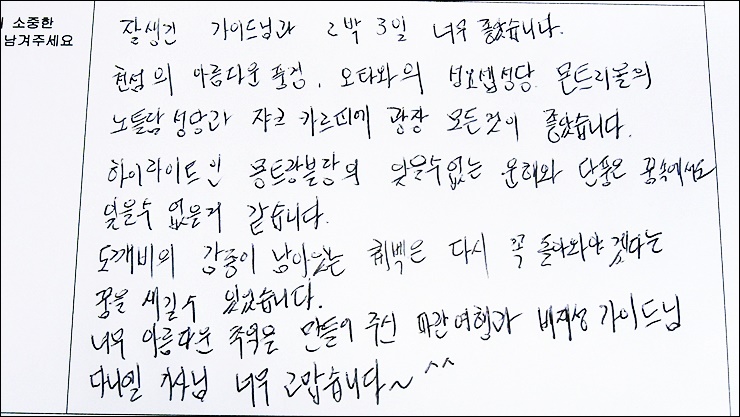 소중한
남겨주세요
잘생긴 가이드님과 2박 3일 너무 좋았습니다.
천섬의 아름다운 풍경, 오타와의 성요셉성당 몬트리올의
노틀담 성당과 쟈크 카르띠에 광장 모든것이 좋았습니다.
하이라이트인 몽트랑블랑의 잊을수없는 운해와 단풍은 꿈속에서도
잊을수 없을거 같습니다.
도깨비의 감동이 남아있는 퀘벡은 다시 꼭 돌아와야 겠다는
꿈을 새길수 있었습니다.
너무 아름다운 추억을 만들어 주신 파란여행과 배재성 가이드님
다니엘 기사님 너무 고맙습니다~ ^^